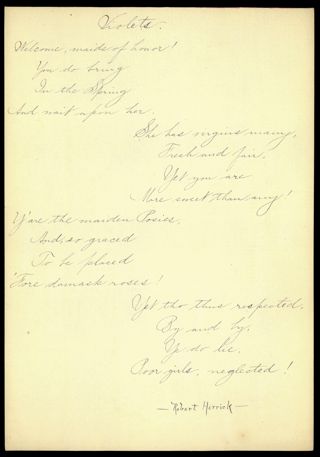 Violets.
Welcome, maids of honor!
You do bring
In the Spring
And wait upon her.
She has virgins many,
Fresh and fair,
Yet you are
More sweet than any!
Y'are the maiden Posies,
And, so graced
To be placed
'Fore damask roses!
Yet tho thus respected,
By and by,
Ye do lie,
Poor girls, neglected!
— Robert Herrick —